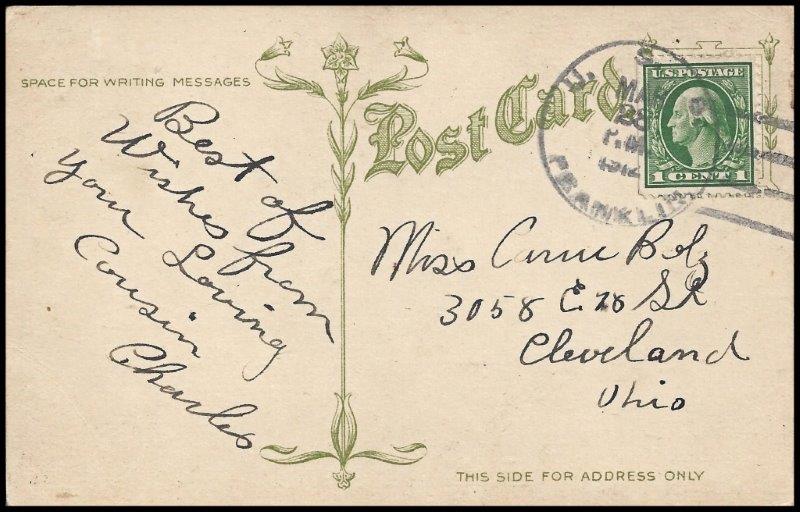 SPACE FOR WRITING MESSAGES
Post Card
U. S.
MAR
28
P.M.
1912
FRANKLIN
U.S. POSTAGE
1 CENT 1
Best of
Wishes from
your Loving
Cousin
Charles
Miss Bolz
3058 E. 78 St
Cleveland
Ohio
THIS SIDE FOR ADDRESS ONLY